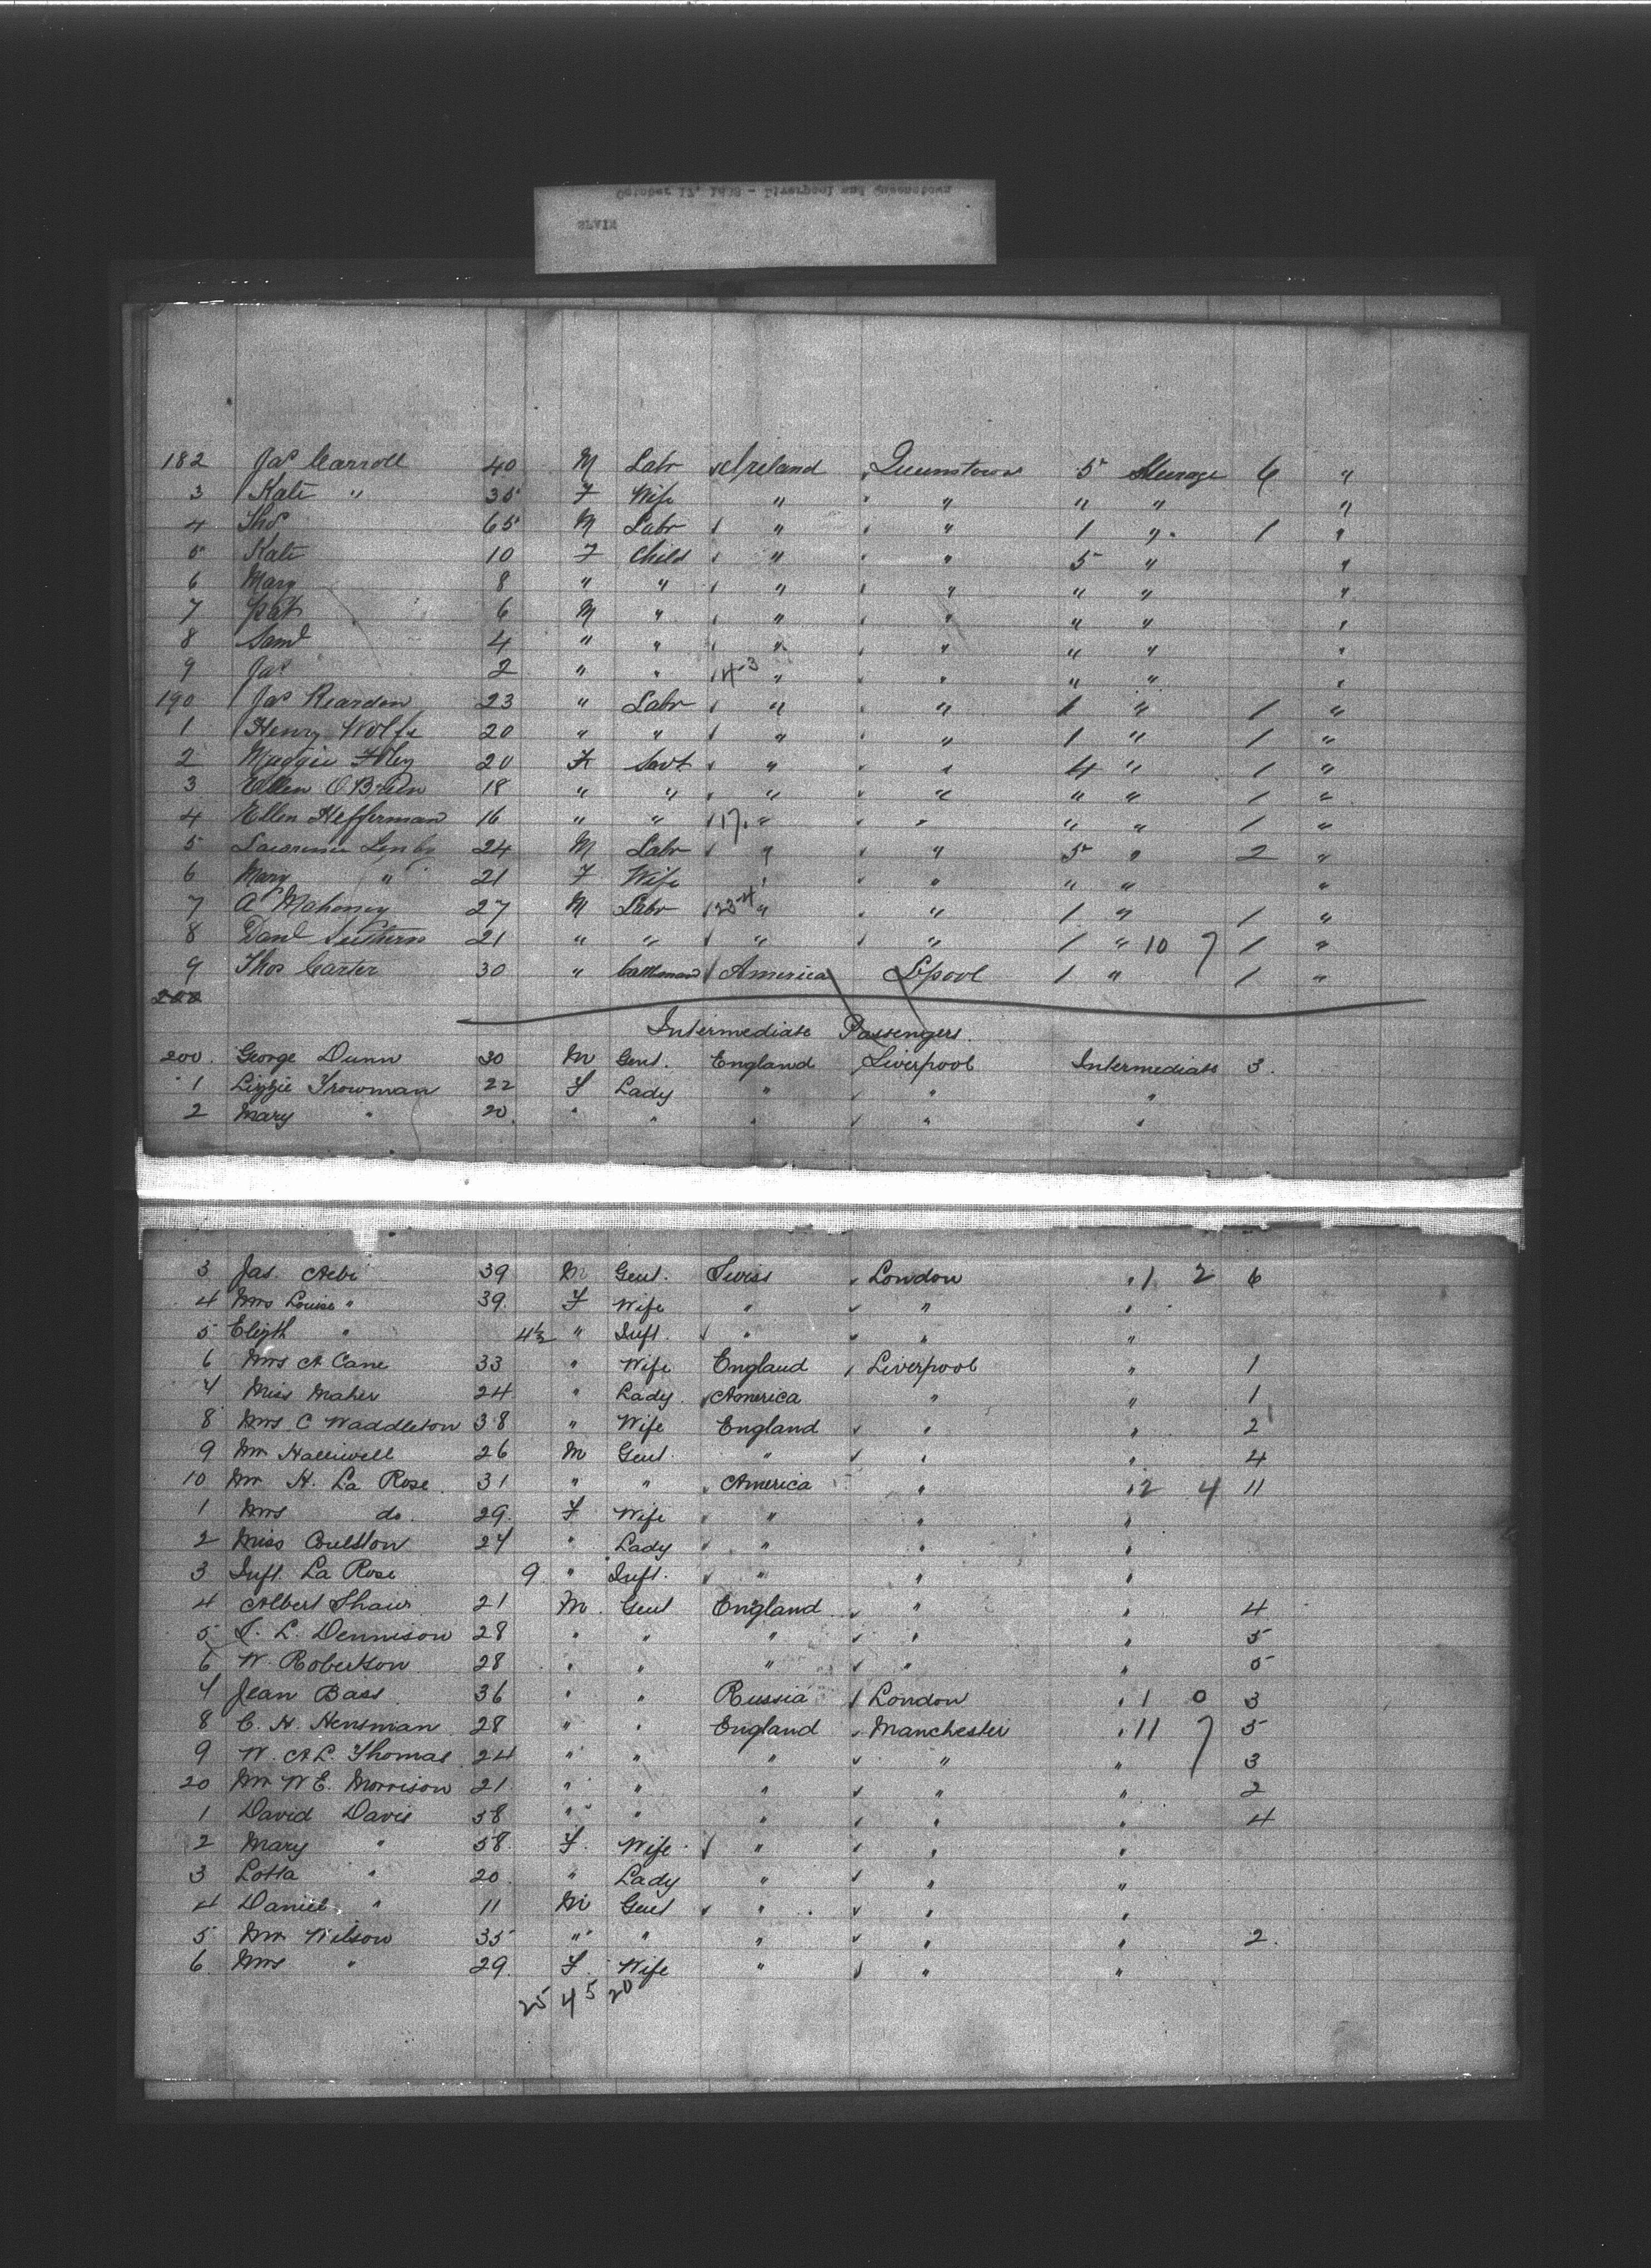 October 17, 1878 - Liverpool and Queenstown
SPAIN
182 Jas Carroll 40 M Labr Ireland Queenstown 5 Steerage 6 "
3 Kate " 35 F Wife " " " " "
4 Thos 65 M Labr " " 1 " 1 "
5 Kate 10 F Child " " 5 " "
6 Mary 8 " " " " " " "
7 Pat 6 M " " " " " "
8 Saml 4 " " " " " " "
9 Jas 2 " " 4-3 " " " " "
190 Jas Reardon 23 " Labr " " 1 " 1 "
1 Henry Wolfe 20 " " " " 1 " 1 "
2 Maggie Foley 20 F Savt " " 4 " 1 "
3 Ellen O'Brien 18 " " " " " " 1 "
4 Ellen Hefferman 16 " " 17 " " " " 1 "
5 24 M Labr " " 5 " 2 "
6 Mary " 21 F Wife " " " " "
7 Mahoney 27 M Labr 23-4 " " 1 " 1 "
8 Danl 21 " " " " 1 " 10 7 1 "
9 Thos Carter 30 " Cattleman America L'pool 1 " 1 "
200
Intermediate Passengers.
200. George Dunn 30 M Gent. England Liverpool Intermediate 3.
1 Lizzie Trowman 22 F Lady " " "
2 Mary " 20. " " " " "
3 Jas. Aebi 39 M Gent. Swiss London " 1 2 6
4 Mrs Louise " 39. F Wife " " "
5 Elizth " 4½ " Inft. " " "
6 Mrs A Cane 33 " Wife England Liverpool " 1
7 Miss Maher 24 " Lady America " " 1
8 Mrs. C Waddleton 38 " Wife England " " 2
9 Mr Halliwell 26 M Gent. " " " 4
10 Mr H. La Rose. 31 " " America " " 2 4 11
1 Mrs do. 29. F Wife " " "
2 Miss Coulston 24 " Lady " " "
3 Inft. La Rose 9. " Inft. " " "
4 Albert Shaw 21 M. Gent England " " 4
5 L. Dennison 28 " " " " " 5
6 W. Robertson 28 " " " " " 5
7 Jean Bass 36 " " Russia London " 1 0 3
8 C. H. Hensman 28 " " England Manchester " 11 7 5
9 W. A L. Thomas 24 " " " " " 3
20 Mr W E. Morrison 21 " " " " " 2
1 David Davis 58 " " " " " 4
2 Mary " 58. F. Wife " " "
3 Lotta " 20 " Lady " " "
4 Daniel " 11 M Gent " " "
5 Mr Wilson 35 " " " " " 2.
6. Mrs " 29. F. Wife " " "
25 45 20